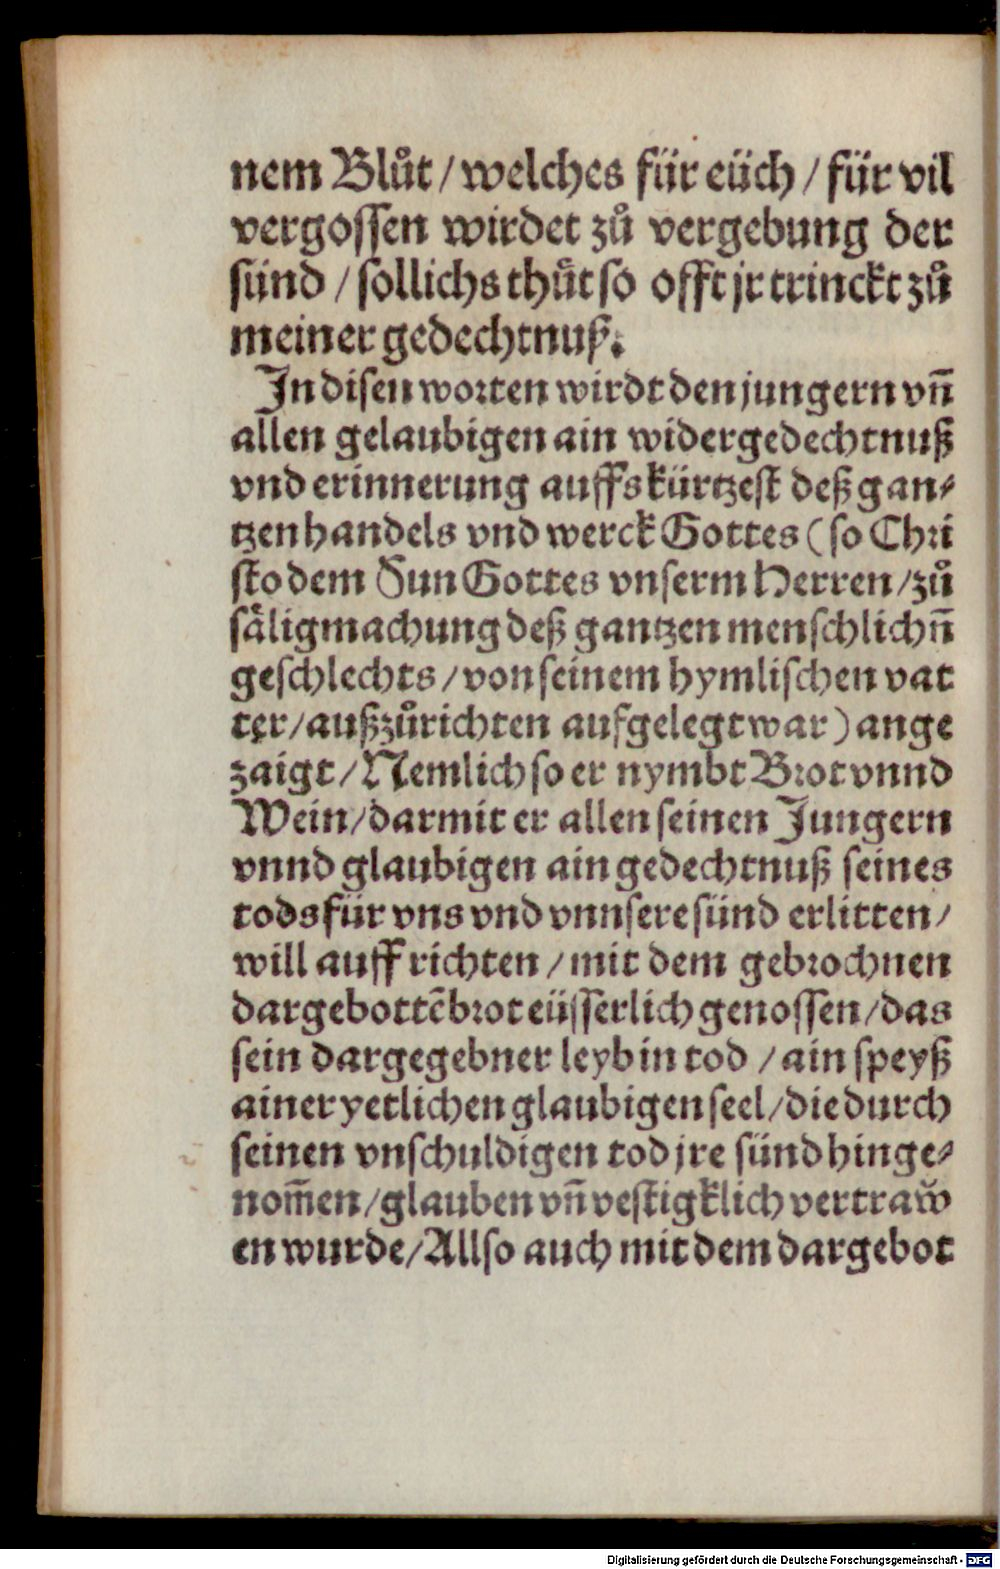 nem Blůt / welches für eüch / für vil
vergossen wirdet zů vergebung der
sünd / sollichs thůt so offt jr trinckt zů
meiner gedechtnuß.
In disen worten wirdt den jungern vn̄
allen gelaubigen ain widergedechtnuß
vnd erinnerung auffs kürtzest deß gan⸗
tzen handels vnd werck Gottes (so Chri
sto dem Sun Gottes vnserm Herren / zů
såligmachung deß gantzen menschlichn̄
geschlechts / von seinem hymlischen vat
ter / außzůrichten aufgelegt war) ange
zaigt / Nemlich so er nymbt Brot vnnd
Wein / darmit er allen seinen Jungern
vnnd glaubigen ain gedechtnuß seines
tods für vns vnd vnnsere sünd erlitten /
will auff richten / mit dem gebrochnen
dargebottē brot eüsserlich genossen / das
sein dargegebner leyb in tod / ain speyß
ainer yetlichen glaubigen seel / die durch
seinen vnschuldigen tod jre sünd hinge⸗
nom̄en / glauben vn̄ vestigklich vertraw̄
en wurde / Allso auch mit dem dargebot
Digitalisierung gefördert durch die Deutsche Forschungsgemeinschaft - DFG